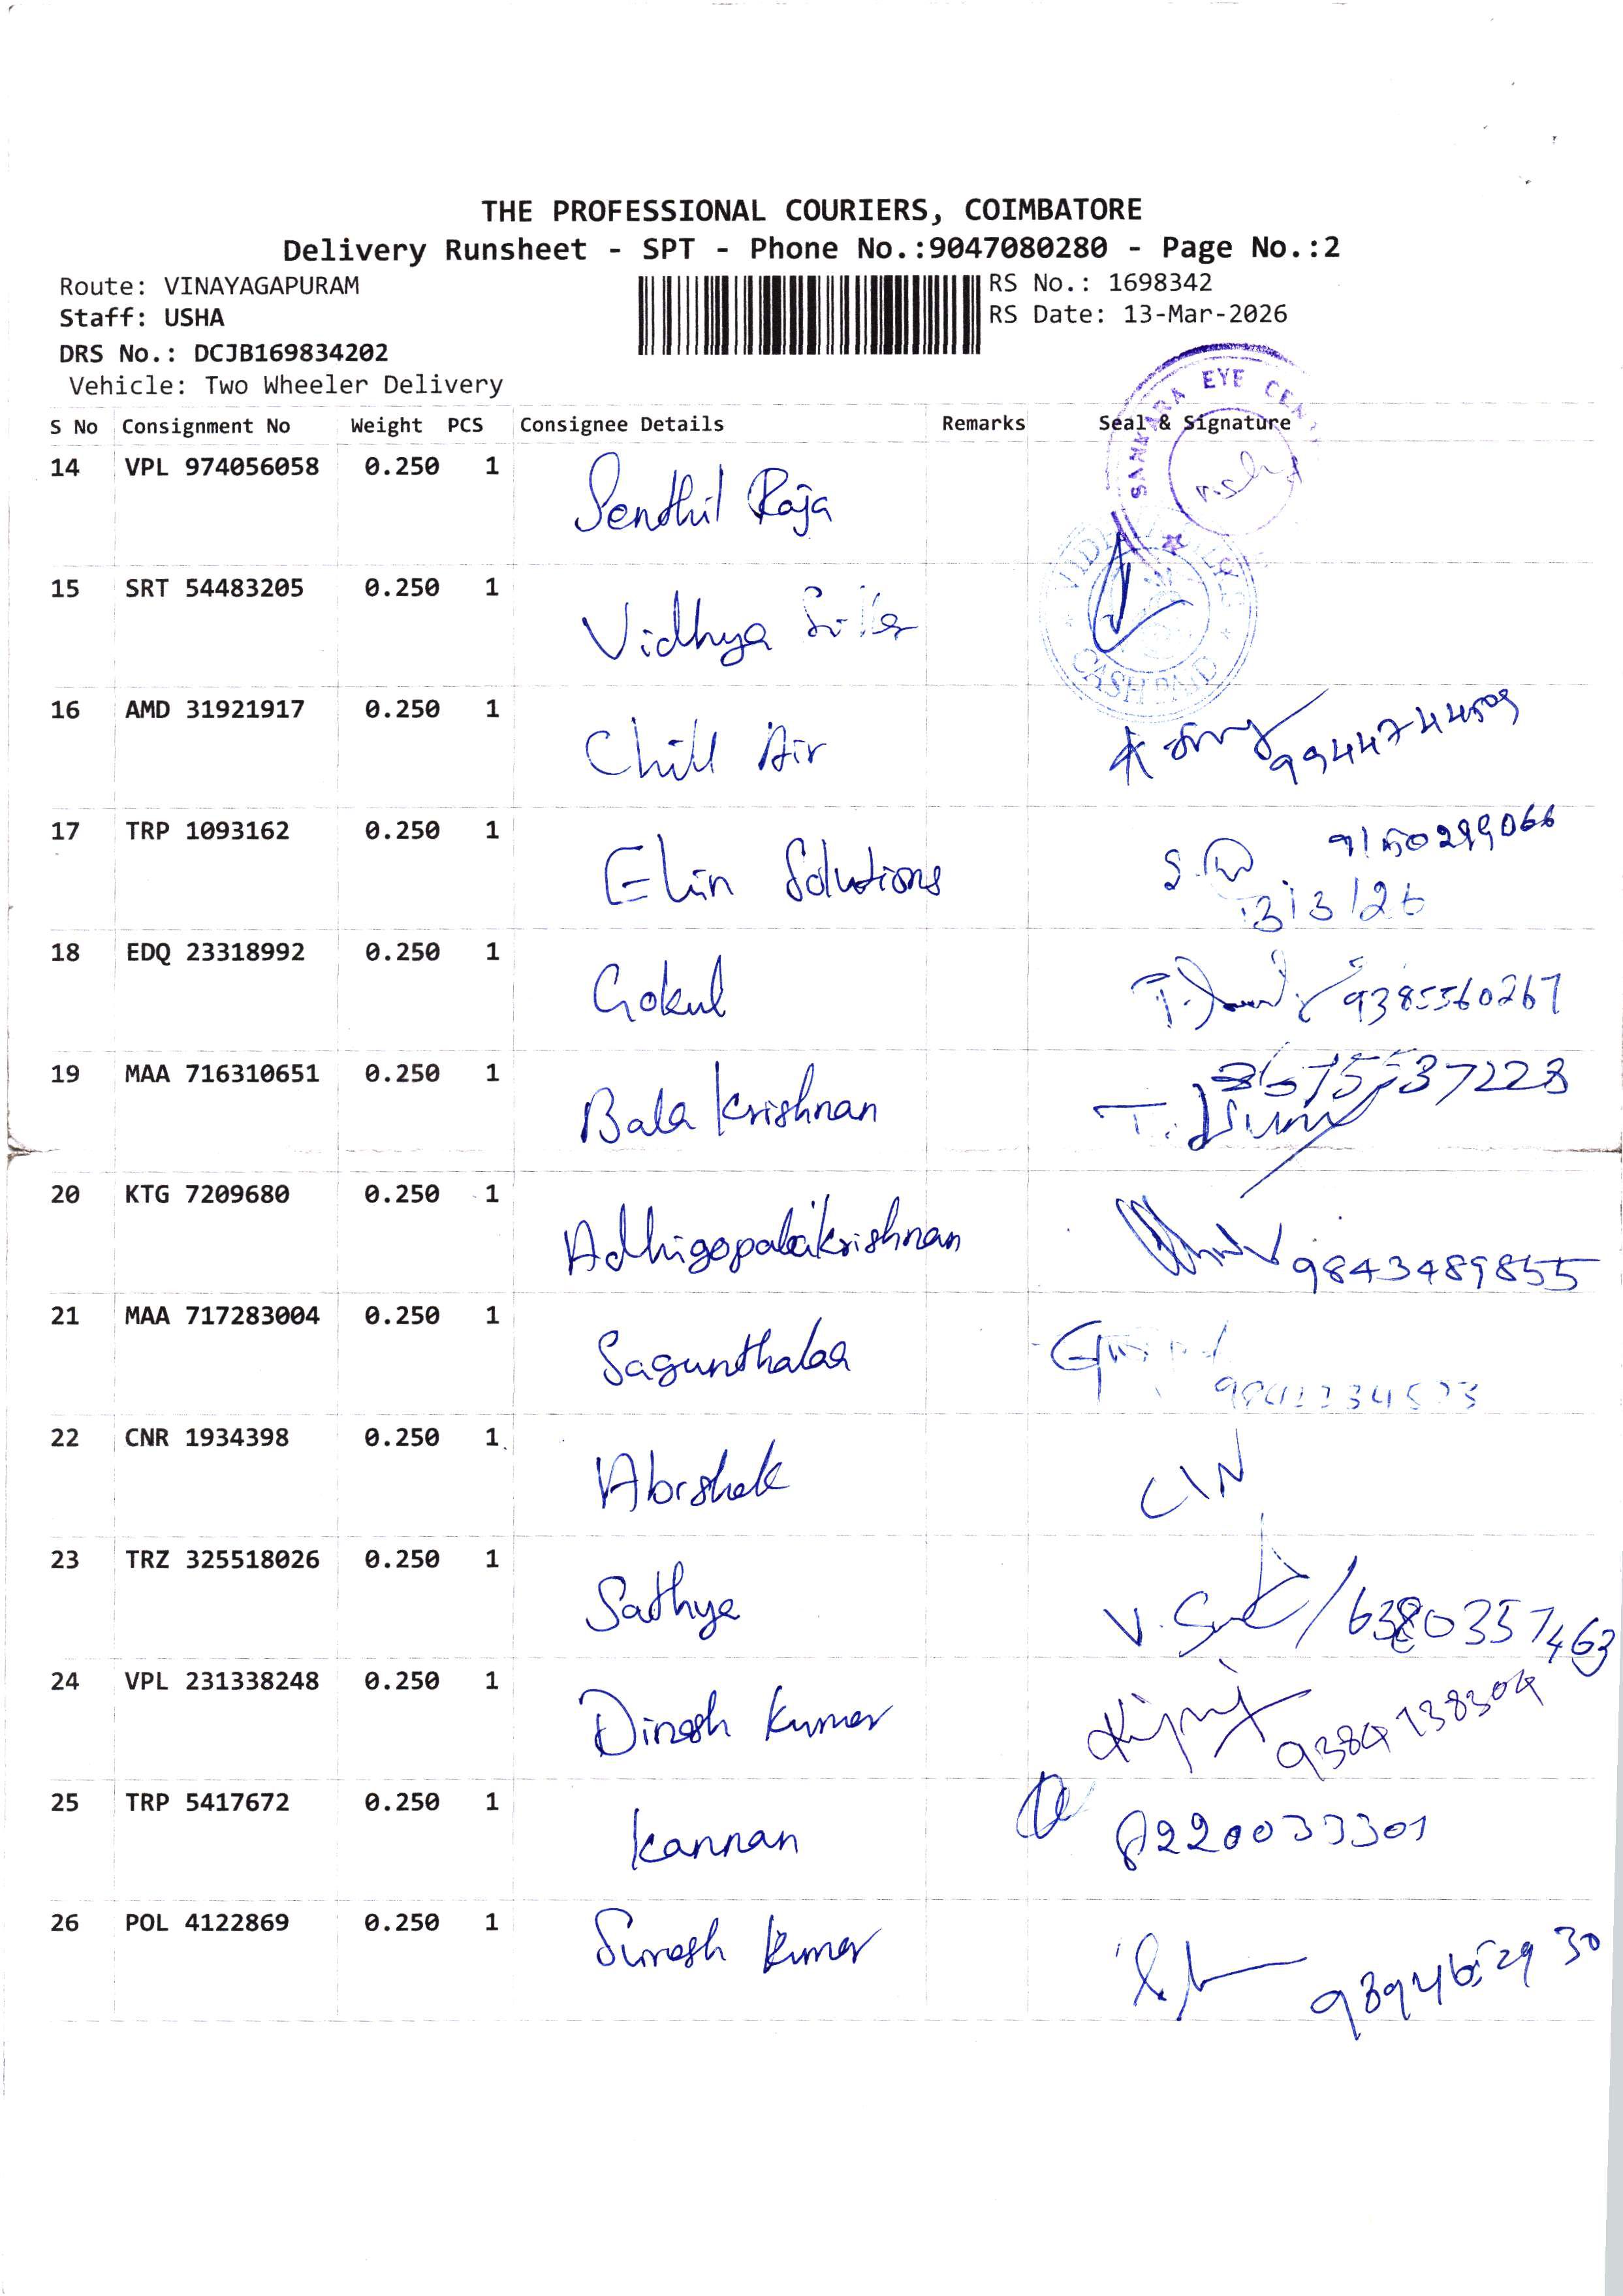 THE PROFESSIONAL COURIERS, COIMBATORE
Delivery Runsheet - SPT - Phone No.:9047080280 - Page No.:2
Route: VINAYAGAPURAM
RS No.: 1698342
Staff: USHA
RS Date: 13-Mar-2026
DRS No.: DCJB169834202
Vehicle: Two Wheeler Delivery
SANKARA EYE CEN
S No Consignment No Weight PCS Consignee Details Remarks Seal & Signature
14 VPL 974056058 0.250 1 Senthil Raja
15 SRT 54483205 0.250 1 Vidhya
CASH PAID
16 AMD 31921917 0.250 1 Chill Air 9944744509
17 TRP 1093162 0.250 1 Elin Solutions 9150299066
13/3/26
18 EDQ 23318992 0.250 1 Gokul 9385560267
19 MAA 716310651 0.250 1 Bala Krishnan
20 KTG 7209680 0.250 1 Adhigopalakrishnan 9843489855
21 MAA 717283004 0.250 1 Sagunthalaa
22 CNR 1934398 0.250 1 Abishek CIN
23 TRZ 325518026 0.250 1 Sathya 6380357463
24 VPL 231338248 0.250 1 Dinesh Kumar 9384738304
25 TRP 5417672 0.250 1 Kannan 8220033301
26 POL 4122869 0.250 1 Suresh Kumar